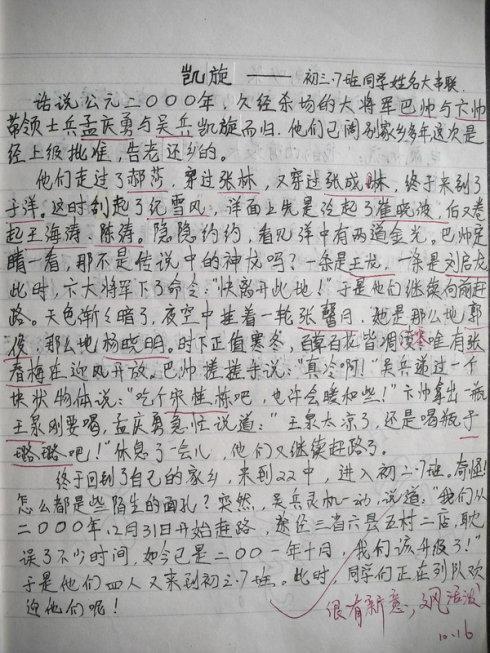 凯旋 —— 初三.7班同学姓名大串联.
话说公元二〇〇〇年，久经杀场的大将军巴帅与卞帅
带领士兵孟庆勇与吴兵凯旋而归.他们已阔别家乡多年这次是
经上级批准，告老还乡的。
他们走过了郝莎，穿过张林，又穿过张成琳，终于来到了
于洋。这时刮起了纪雪风，洋面上先是泛起了崔晓波，后又卷
起王海涛、陈涛。隐隐约约，看见洋中有两道金光。巴帅定
睛一看，那不是传说中的神龙吗？一条是王龙，一条是刘启龙
此时，卞大将军下了命令："快离开此地！"于是他们继续向前赶
路。天色渐渐暗了，夜空中挂着一轮张馨月，她是那么地郭
俊，那么地杨晓明。时下正值寒冬，百草百花皆凋零唯有张
春梅在迎风开放。巴帅搓搓手说："真冷啊！"吴兵递过一个
块状物体说："吃个宋桂栋吧，也许会暖和些！"卞帅拿出一瓶
王泉刚要喝，孟庆勇急忙说道："王泉太凉了，还是喝瓶于
璐璐吧！"休息了一会儿，他们又继续赶路了。
终于回到了自己的家乡，来到22中，进入初三.7班。奇怪！
怎么都是些陌生的面孔？突然，吴兵灵机一动，说道："我们从
二〇〇〇年，12月31日开始赶路，途经三省六县五村二店，耽
误了不少时间，如今已是二〇〇一年十月，我们该升级了！"
于是他们四人又来到初三.7班。此时，同学们正在列队欢
迎他们呢！
很有新意，文风活泼
10.16